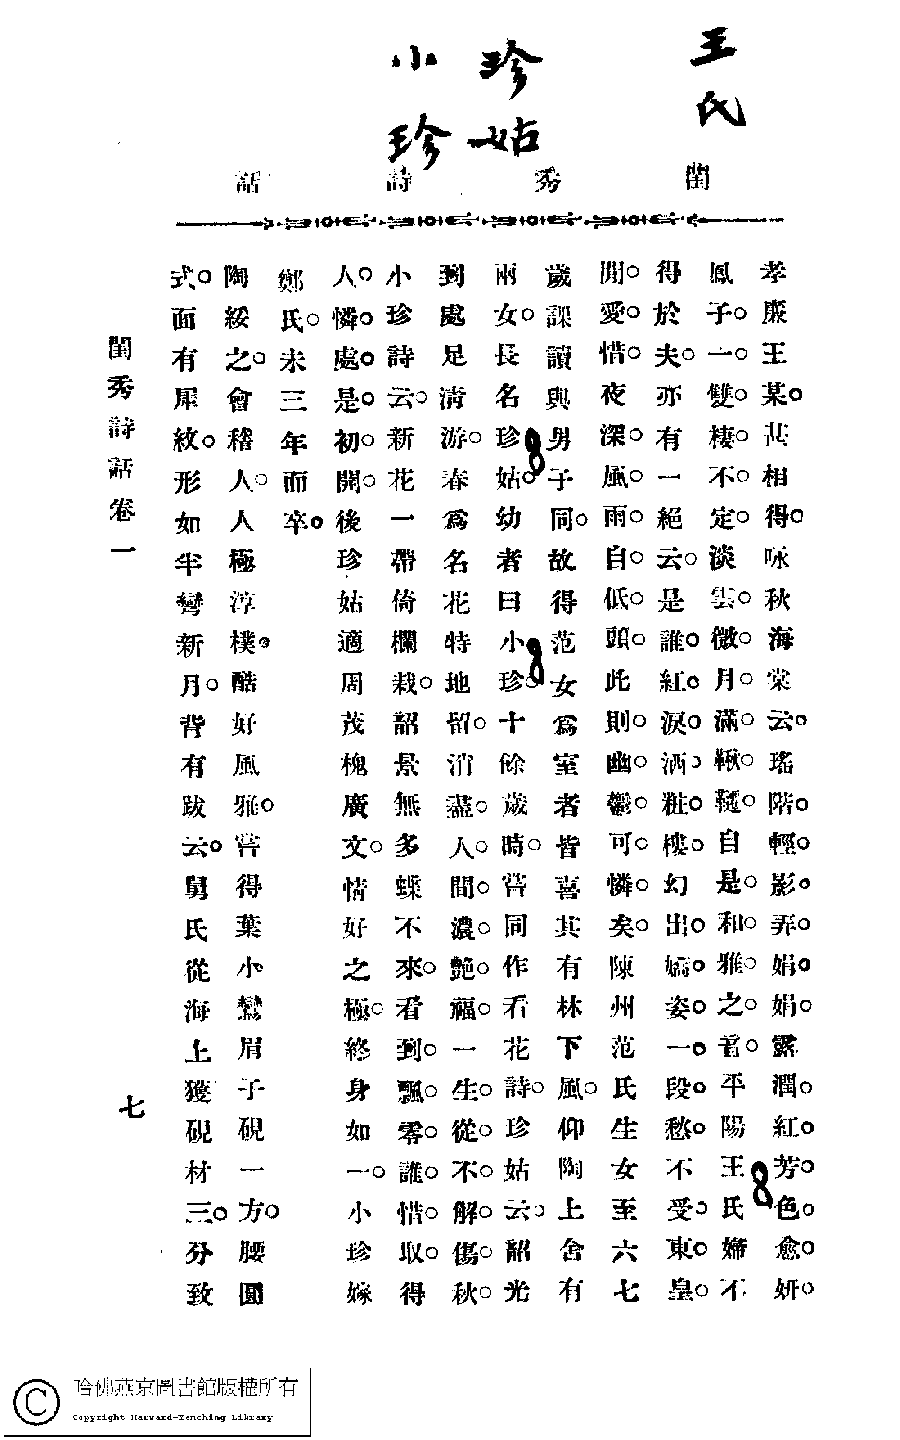 王氏
珍姑
小珍
閨秀詩話
孝廉王某。甚相得。咏秋海棠云。瑤階。輕。影。弄。娟。娟。露潤。紅。芳。色。愈。妍。
鳳子。一。雙。棲。不定。淡雲。微。月。滿。鞦。韆。自是。和。雅。之。音。平陽王氏婦不
得於夫。亦有一絕云。是誰。紅。淚。洒。粧。樓。幻出。嬌。姿。一。段。愁。不受。東。皇。
閒。愛。惜。夜深。風。雨自。低。頭。此則。幽。鬱。可。憐。矣。陳州范氏生女至六七
歲課讀與男子同。故得范女爲室者皆喜其有林下風。仰陶上舍有
兩女。長名珍姑。幼者曰小珍。十餘歲時。嘗同作看花詩。珍姑云。韶光
到處足清游。春爲名花特地留。消盡。人。間。濃。艶。福。一生。從。不。解。傷。秋。
小珍詩云。新花一帶倚欄栽。韶景無多蝶不來。看到。飄。零。誰。惜。取。得
人。憐。處。是。初。開。後珍姑適周茂槐廣文。情好之極。終身如一。小珍嫁
鄭氏。未三年而卒。
陶綏之。會稽人。人極淳樸。酷好風雅。嘗得葉小鸞眉子硯一方。腰圓
式。面有犀紋。形如半彎新月。背有跋云。舅氏從海上獲硯材三。分致
閨秀詩話卷一
七
哈佛燕京圖書館版權所有
Copyright Harvard-Yenching Library